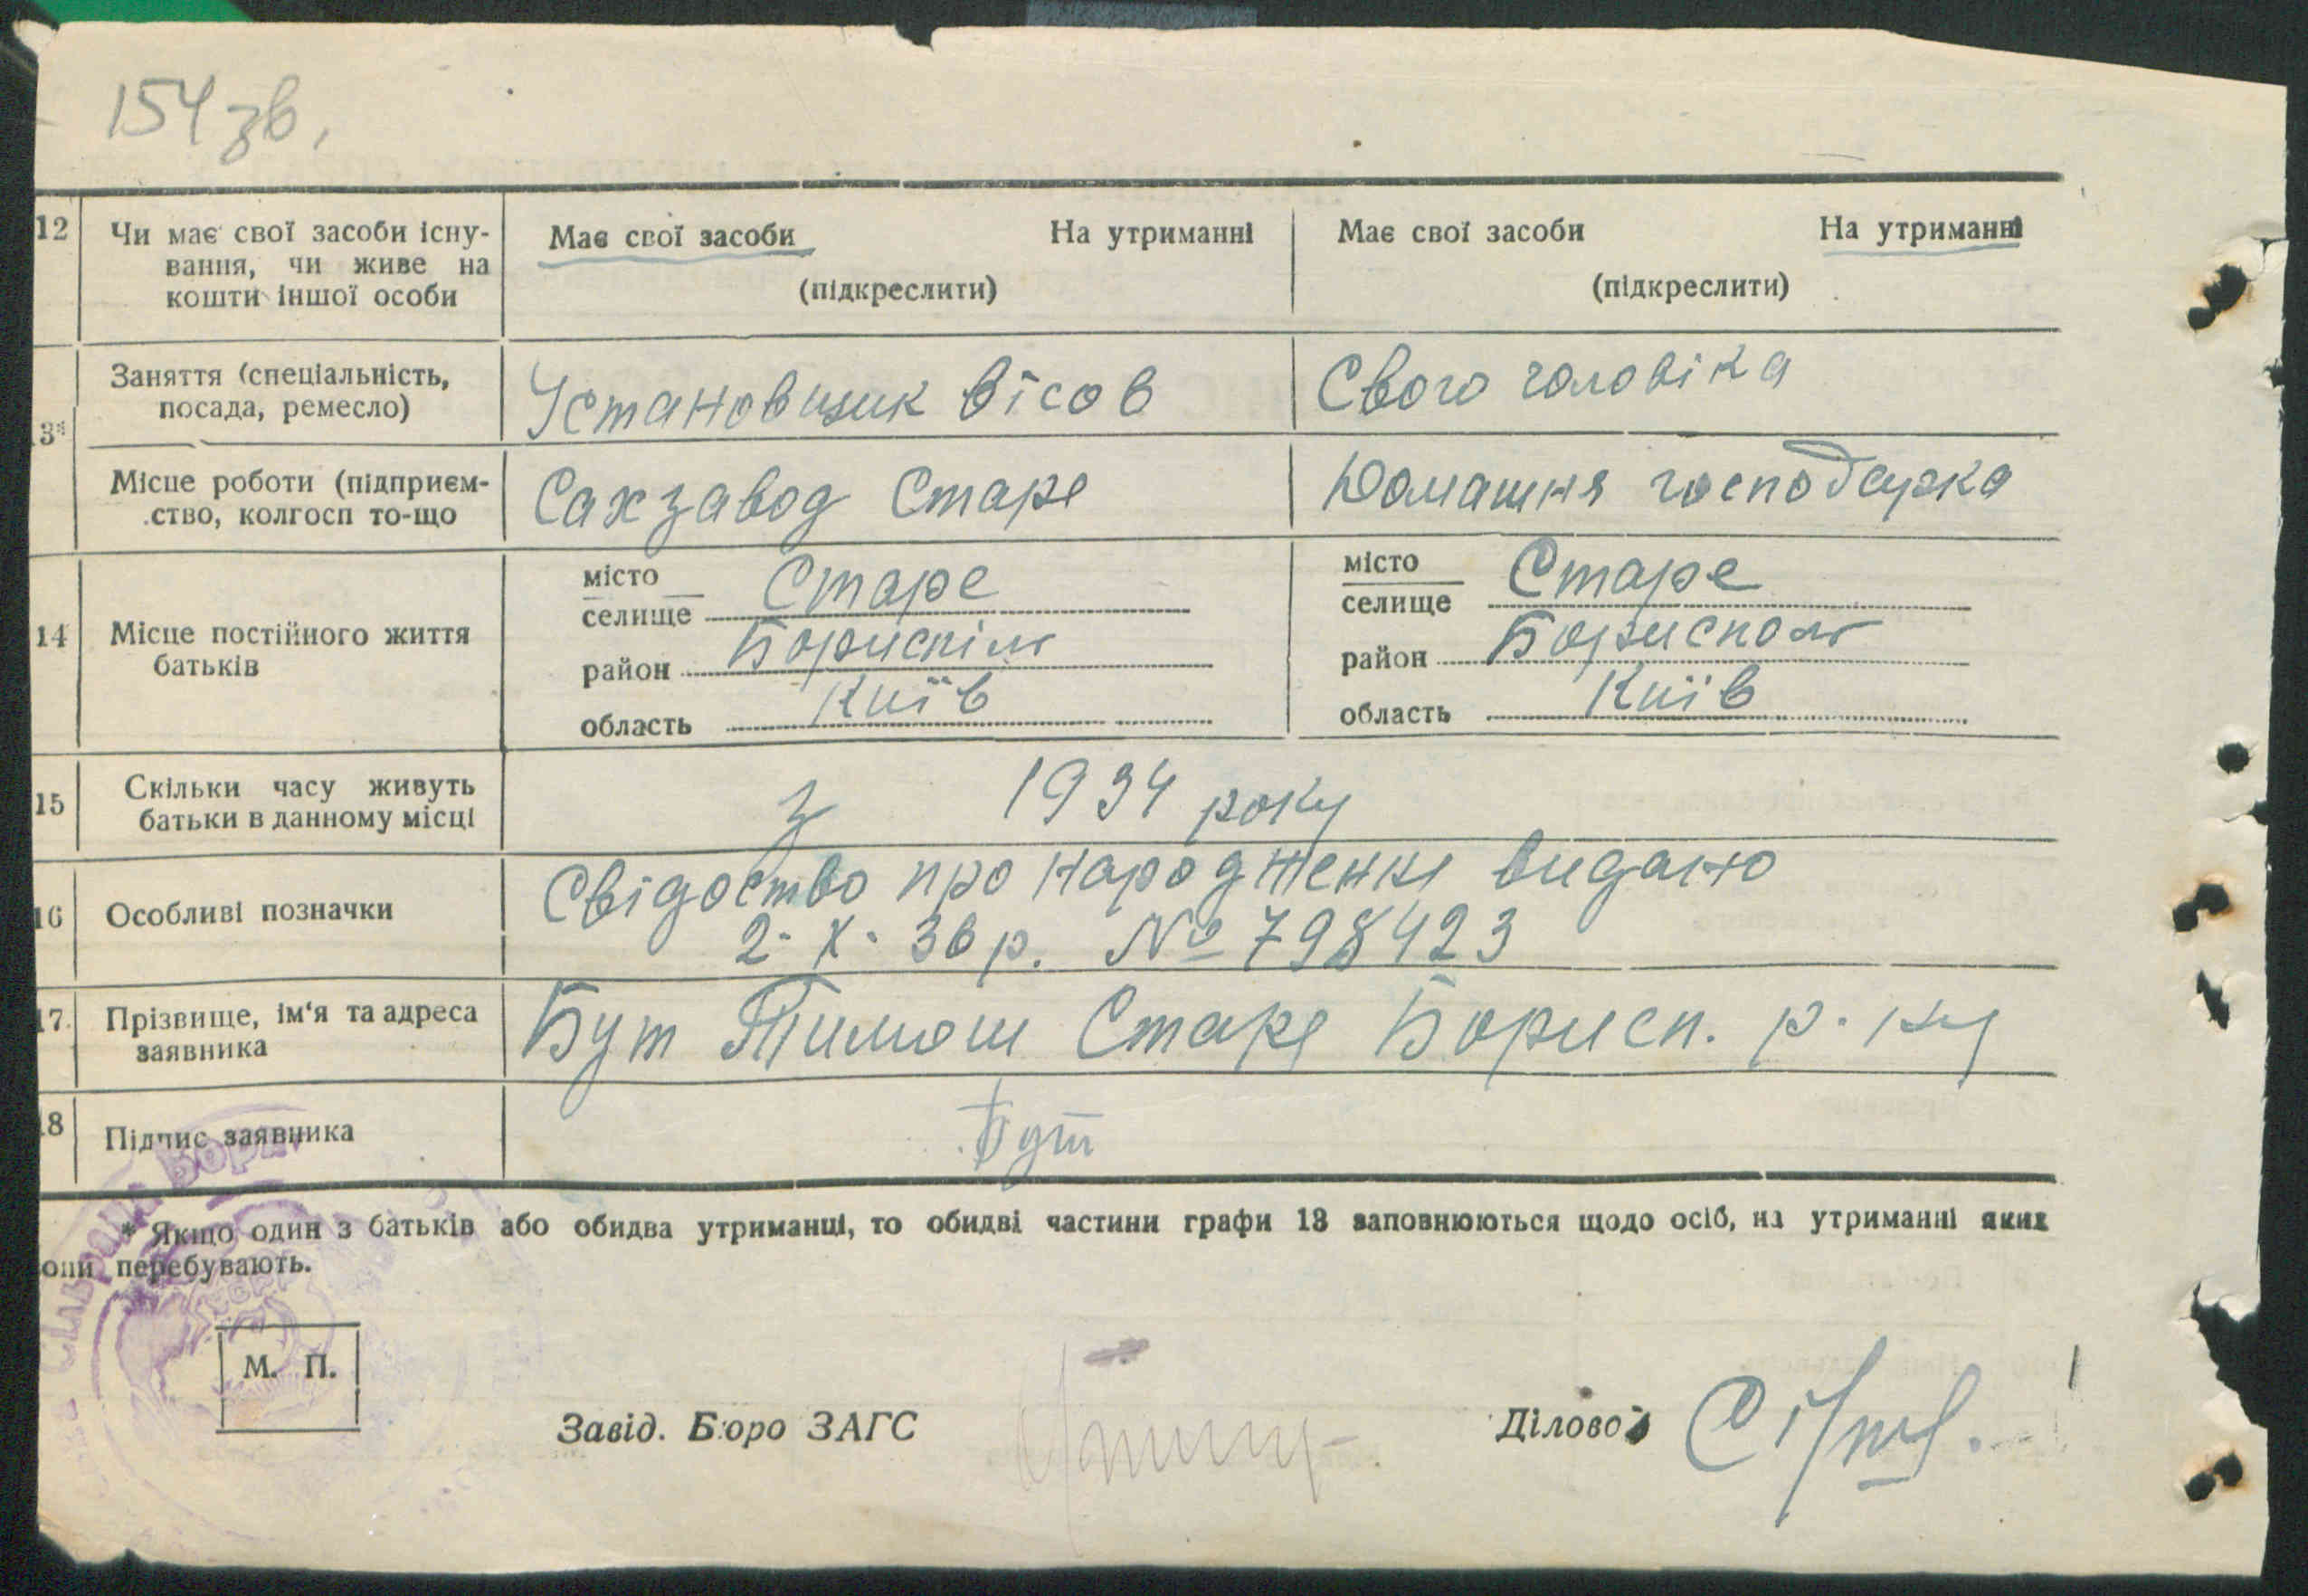 154 зв.
12 Чи має свої засоби існу-
вання, чи живе на
кошти іншої особи
Має свої засоби На утриманні
(підкреслити)
Має свої засоби На утриманні
(підкреслити)
13* Заняття (спеціальність,
посада, ремесло)
Установщик вісов
Свого чоловіка
Місце роботи (підприєм-
ство, колгосп то-що
Сахзавод Старе
Домашня господарка
14 Місце постійного життя
батьків
місто
селище Старе
район Бориспіль
область Київ
місто
селище Старе
район Борисполь
область Київ
15 Скільки часу живуть
батьки в данному місці
З 1934 року
16 Особливі позначки
Свідоство про народження видано
2. X. 36 р. № 798423
17. Прізвище, ім'я та адреса
заявника
Бут Тимош Старе Борисп. р-ну
18 Підпис заявника
Бут
* Якщо один з батьків або обидва утриманці, то обидві частини графи 13 заповнюються щодо осіб, на утриманні яких
они перебувають.
М. П.
Завід. Бюро ЗАГС
Діловод